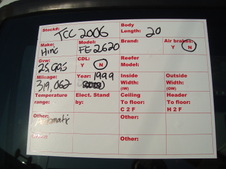 Stock#: TCC 2006
Body Length: 20
Make: Hino
Model: FE2620
Brand:
Air brakes: Y N
GVW: 25,995
CDL: Y N
Reefer Model:
Mileage: 319,062
Year: 1999
Inside Width: (IW)
Outside Width: (OW)
Temperature range:
Elect. Stand by:
Ceiling To floor: C 2 F
Header To floor: H 2 F
Other:
Other:
Other:
Other: